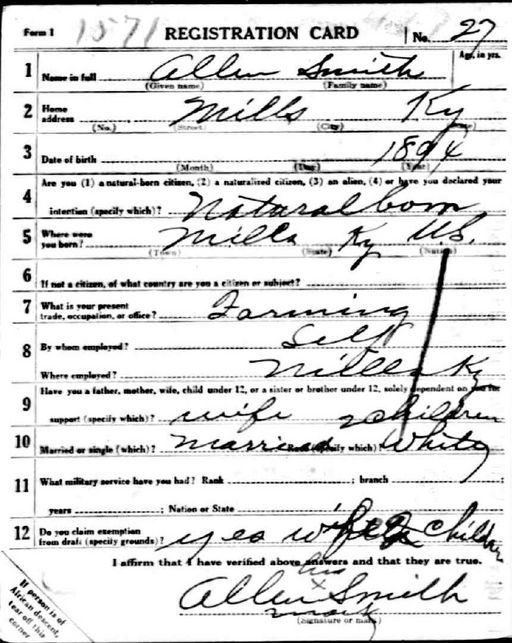 Form 1 1571 REGISTRATION CARD No. 27
Age, in yrs.
1 Name in full Allen Smith
(Given name) (Family name)
2 Home address Mills Ky
(No.) (Street) (City) (State)
3 Date of birth 1894
(Month) (Day) (Year)
4 Are you (1) a natural-born citizen, (2) a naturalized citizen, (3) an alien, (4) or have you declared your
intention (specify which)? Natural born
5 Where were you born? Mills Ky U.S.
(Town) (State) (Nation)
6 If not a citizen, of what country are you a citizen or subject?
7 What is your present trade, occupation, or office? Farming
8 By whom employed? Self
Where employed? Mills Ky
9 Have you a father, mother, wife, child under 12, or a sister or brother under 12, solely dependent on you for
support (specify which)? wife 2 children
10 Married or single (which)? Married Race (specify which) White
11 What military service have you had? Rank ; branch
years ; Nation or State
12 Do you claim exemption from draft (specify grounds)? yes wife 2 children
I affirm that I have verified above answers and that they are true.
his
Allen x Smith
mark
(Signature or mark)
If person is of
African descent,
tear off this
corner